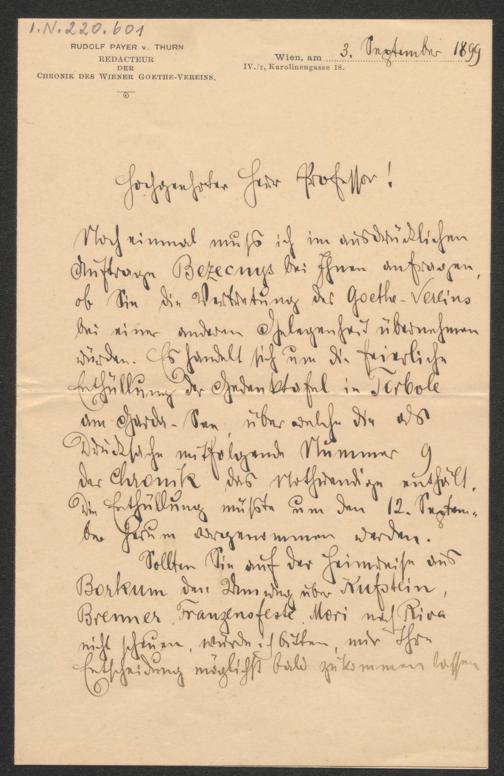 I.N.220.601
RUDOLF PAYER v. THURN
REDACTEUR
DER
CHRONIK DES WIENER GOETHE-VEREINS.
Wien, am 3. September 1899
IV./2, Karolinengasse 18.
Hochgeehrter Herr Professor!
Noch einmal muß ich im ausdrücklichen
Auftrage Bezecnys bei Ihnen anfragen,
ob Sie die Vertretung des Goethe-Vereins
bei einer anderen Gelegenheit übernehmen
würden. Es handelt sich um die feierliche
Enthüllung der Gedenktafel in Torbole
am Garda-See über welche die als
Drucksache mitfolgende Nummer 9
der Chronik das Nothwendige enthält.
Die Enthüllung müßte um den 12. Septem-
ber herum vorgenommen werden.
Sollten Sie auf der Heimreise aus
Borkum den Umweg über Kufstein,
Brenner, Franzensfeste, Mori nach Riva
nicht scheuen, würde ich bitten, mir Ihre
Entscheidung möglichst bald zukommen lassen